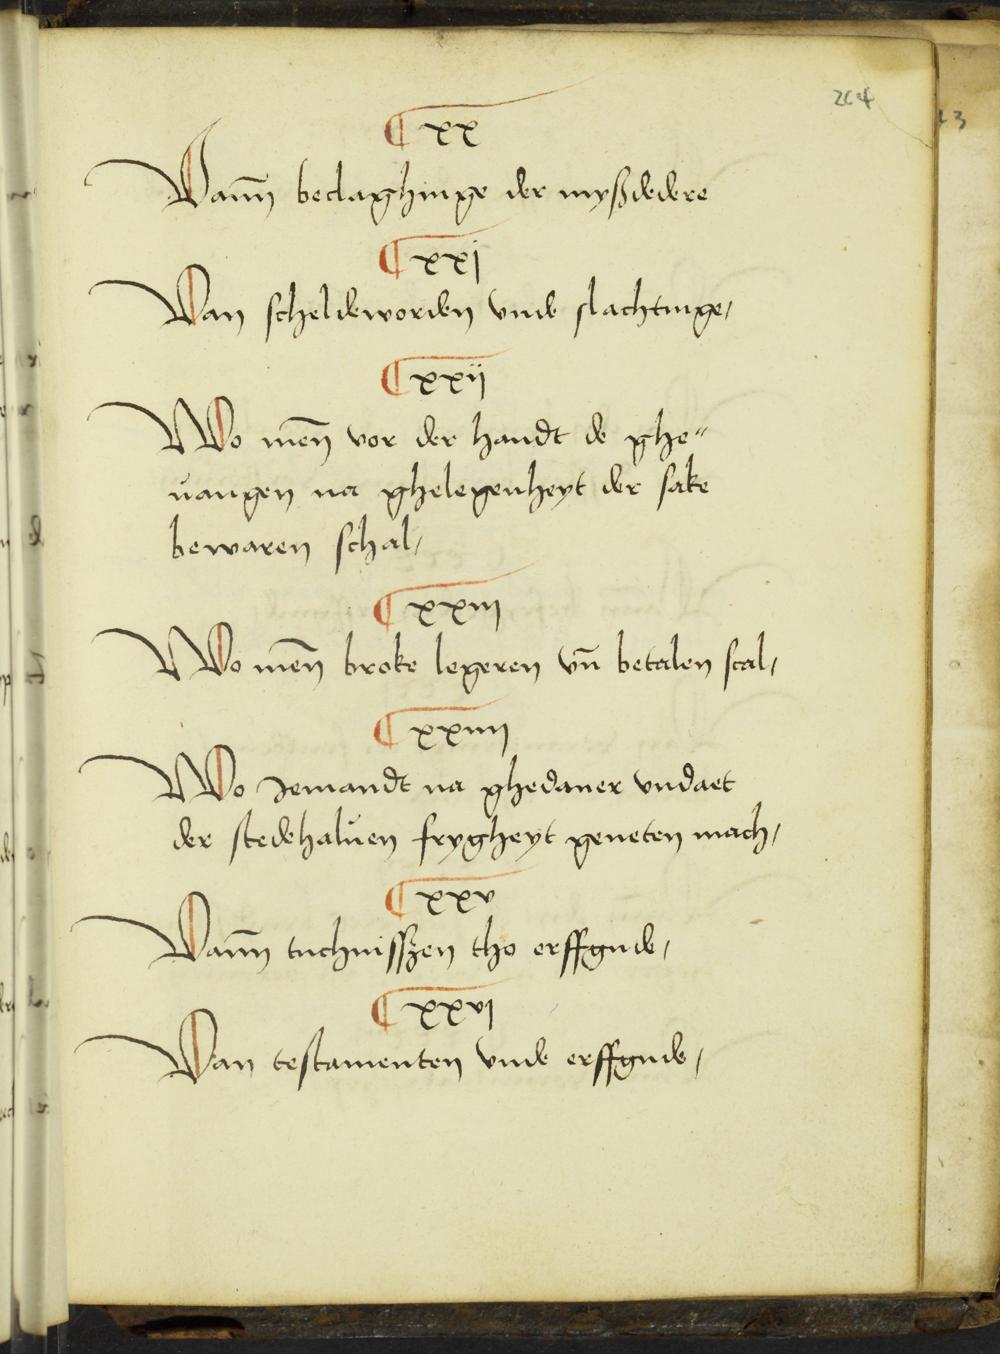 264
¶ xx
Vann̄ beclaghinge der myßdedere
¶ xxj
Van scheldeworden vnde slachtinge,
¶ xxij
Wo men̄ vor der handt de ghe"
uangen na ghelegenheyt der sake
bewaren schal,
¶ xxiij
Wo men̄ broke legeren vn̄ betalen scal,
¶ xxiiij
Wo Jemandt na ghedaner vndaet
der stedehaluen frygheyt geneten mach,
¶ xxv
Vann̄ tuchnisszen tho erffgude,
¶ xxvj
Van testamenten vnde erffgude,